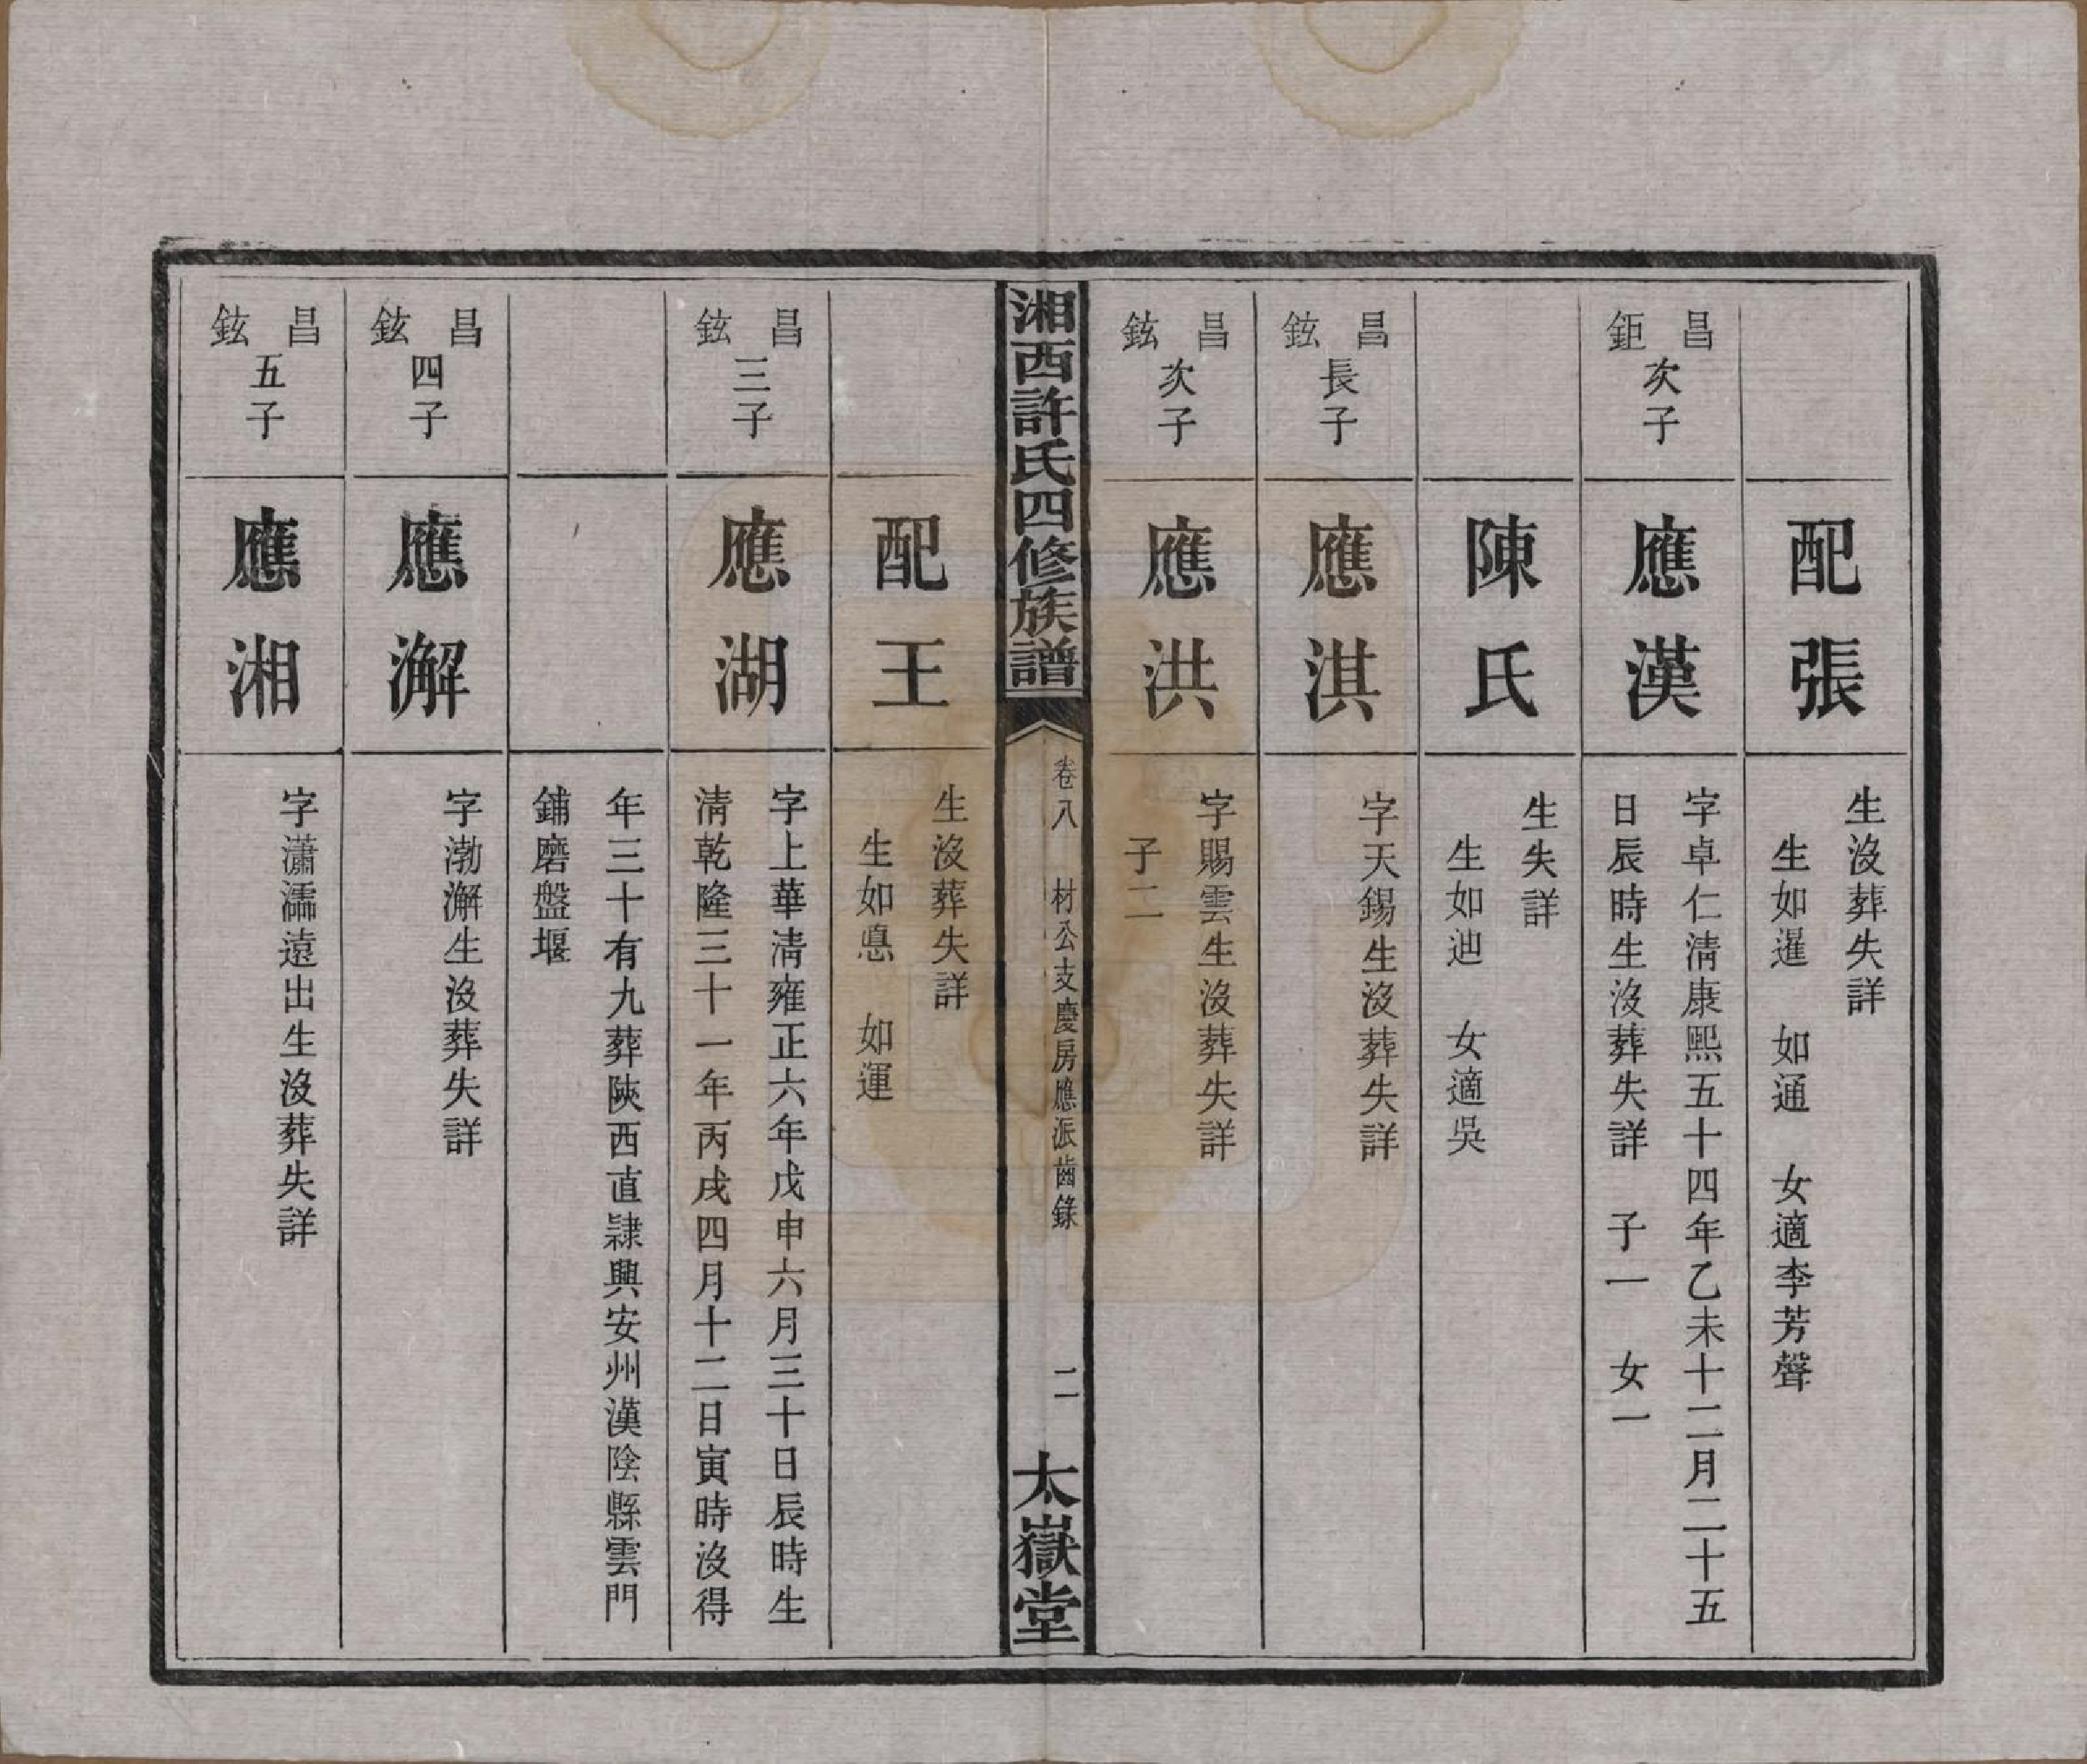 配張
生沒葬失詳
生如暹　如通　女適李芳聲
昌鉅次子
應漢
字卓仁淸康熙五十四年乙未十二月二十五
日辰時生沒葬失詳　子一　女一
陳氏
生失詳
生如迪　女適吳
昌鉉長子
應淇
字天錫生沒葬失詳
昌鉉次子
應洪
字賜雲生沒葬失詳
子二
湘西許氏四修族譜
卷八　材公支慶房應派齒錄　二
太嶽堂
配王
生沒葬失詳
生如　如運
昌鉉三子
應湖
字上華淸雍正六年戊申六月三十日辰時生
淸乾隆三十一年丙戌四月十二日寅時沒得
年三十有九葬陝西直隷興安州漢陰縣雲門
鋪磨盤堰
昌鉉四子
應澥
字渤澥生沒葬失詳
昌鉉五子
應湘
字瀟濡遠出生沒葬失詳